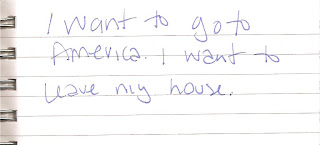 I want to go to
America. I want to
leave my house.